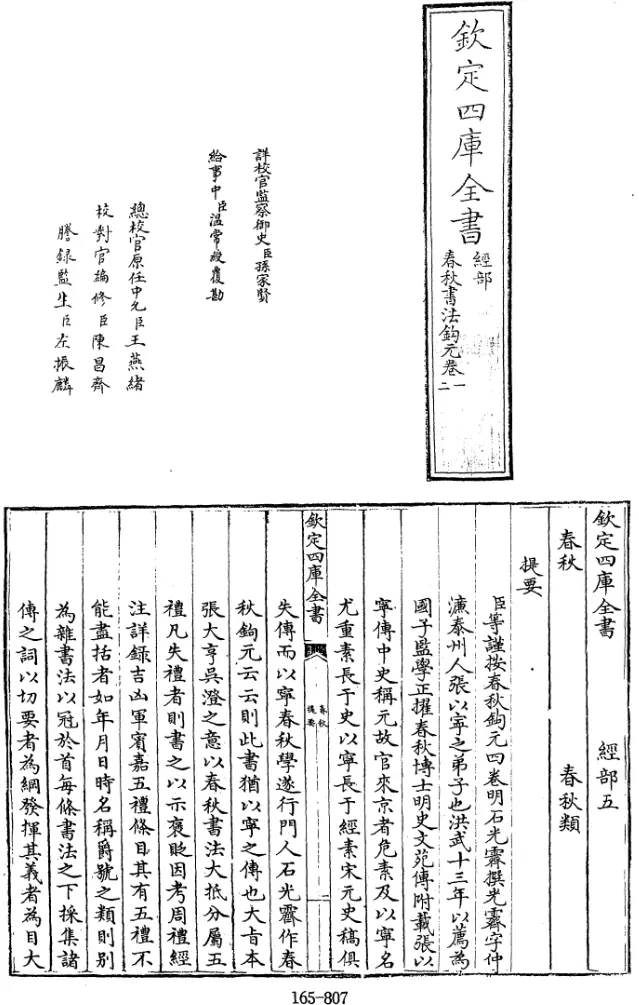 欽定四庫全書
經部
春秋書法鈎元卷一
二
詳校官監察御史臣孫家賢
給事中臣溫常綬覆勘
總校官原任中允臣王燕緒
校對官編修臣陳昌齊
謄録監生臣左振麟
欽定四庫全書 經部五
春秋 春秋類
提要
臣等謹按春秋鈎元四卷明石光霽撰光霽字仲
濂泰州人張以寧之弟子也洪武十三年以薦為
國子監學正擢春秋博士明史文苑傳附載張以
寧傳中史稱元故官來京者危素及以寧名
尤重素長于史以寧長于經素宋元史稿俱
欽定四庫全書
春秋
提要
二
失傳而以寧春秋學遂行門人石光霽作春
秋鈎元云云則此書猶以寧之傳也大旨本
張大亨吳澄之意以春秋書法大抵分屬五
禮凡失禮者則書之以示褒貶因考周禮經
注詳錄吉凶軍賓嘉五禮條目其有五禮不
能盡括者如年月日時名稱爵號之類則別
為雜書法以冠於首每條書法之下採集諸
傳之詞以切要者為綱發揮其義者為目大
165-807